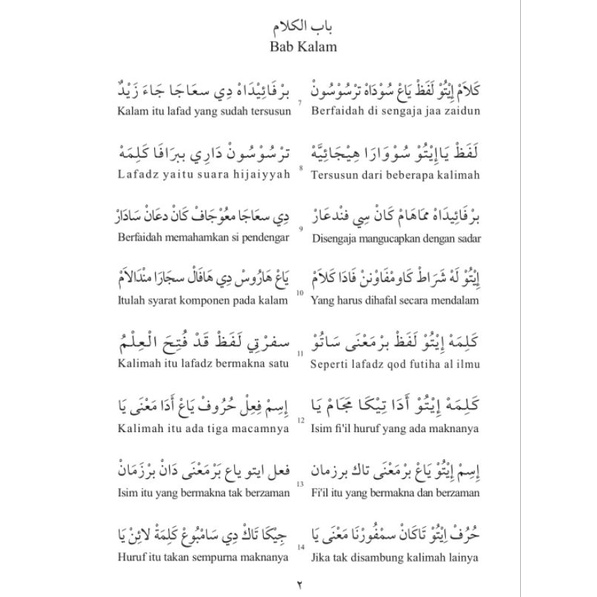 باب الكلام
Bab Kalam
كَلَامْ إِيْتُوْ لَفَظْ يَاغْ سُوْدَاهْ تَرْسُوْسُوْنْ 7 بَرْفَائِيْدَاهْ دِي سَعَاجَا جَاءَ زَيْدٌ
Kalam itu lafad yang sudah tersusun Berfaidah di sengaja jaa zaidun
لَفَظْ يَاإِيْتُوْ سُوْوَارَا هِيْجَائِيَّهْ 8 تَرْسُوْسُونْ دَارِي بَبَرَافَا كَلِمَهْ
Lafadz yaitu suara hijaiyyah Tersusun dari beberapa kalimah
بَرْفَائِيْدَاهْ مَمَاهَامْ كَانْ سِي فَنْدَعَارْ 9 دِي سَعَاجَا مَعُوْجَافْ كَانْ دَعَانْ سَادَارْ
Berfaidah memahamkan si pendengar Disengaja mangucapkan dengan sadar
إِيْتُوْ لَهْ شَرَاطْ كَاومْفَاوْنَنْ فَادَا كَلَامْ 10 يَاغْ هَارُوْسْ دِي هَافَالْ سَجَارَا مَنْدَالَامْ
Itulah syarat komponen pada kalam Yang harus dihafal secara mendalam
كَلِمَهْ إِيْتُوْ لَفَظْ بَرْمَعْنَى سَاتُوْ 11 سَفَرْتِي لَفَظْ قَدْ فُتِحَ الْعِلْمُ
Kalimah itu lafadz bermakna satu Seperti lafadz qod futiha al ilmu
كَلِمَهْ إِيْتُوْ أَدَا تِيْكَا مَجَامْ يَا 12 إِسِمْ فِعِلْ حُرُوفْ يَاغْ أَدَا مَعْنَى يَا
Kalimah itu ada tiga macamnya Isim fi'il huruf yang ada maknanya
إِسِمْ إِيْتُوْ يَاغْ بَرْمَعْنَى تاك برزمان 13 فعل ايتو ياغ بَرْمَعْنَى دَانْ بَرْزَمَانْ
Isim itu yang bermakna tak berzaman Fi'il itu yang bermakna dan berzaman
حُرُفْ إِيْتُوْ تَاكَانْ سَمْفُوْرْنَا مَعْنَى يَا 14 جِيْكَا تَاكْ دِي سَامْبُوْغْ كَلِمَةْ لَائِنْ يَا
Huruf itu takan sempurna maknanya Jika tak disambung kalimah lainya
٢